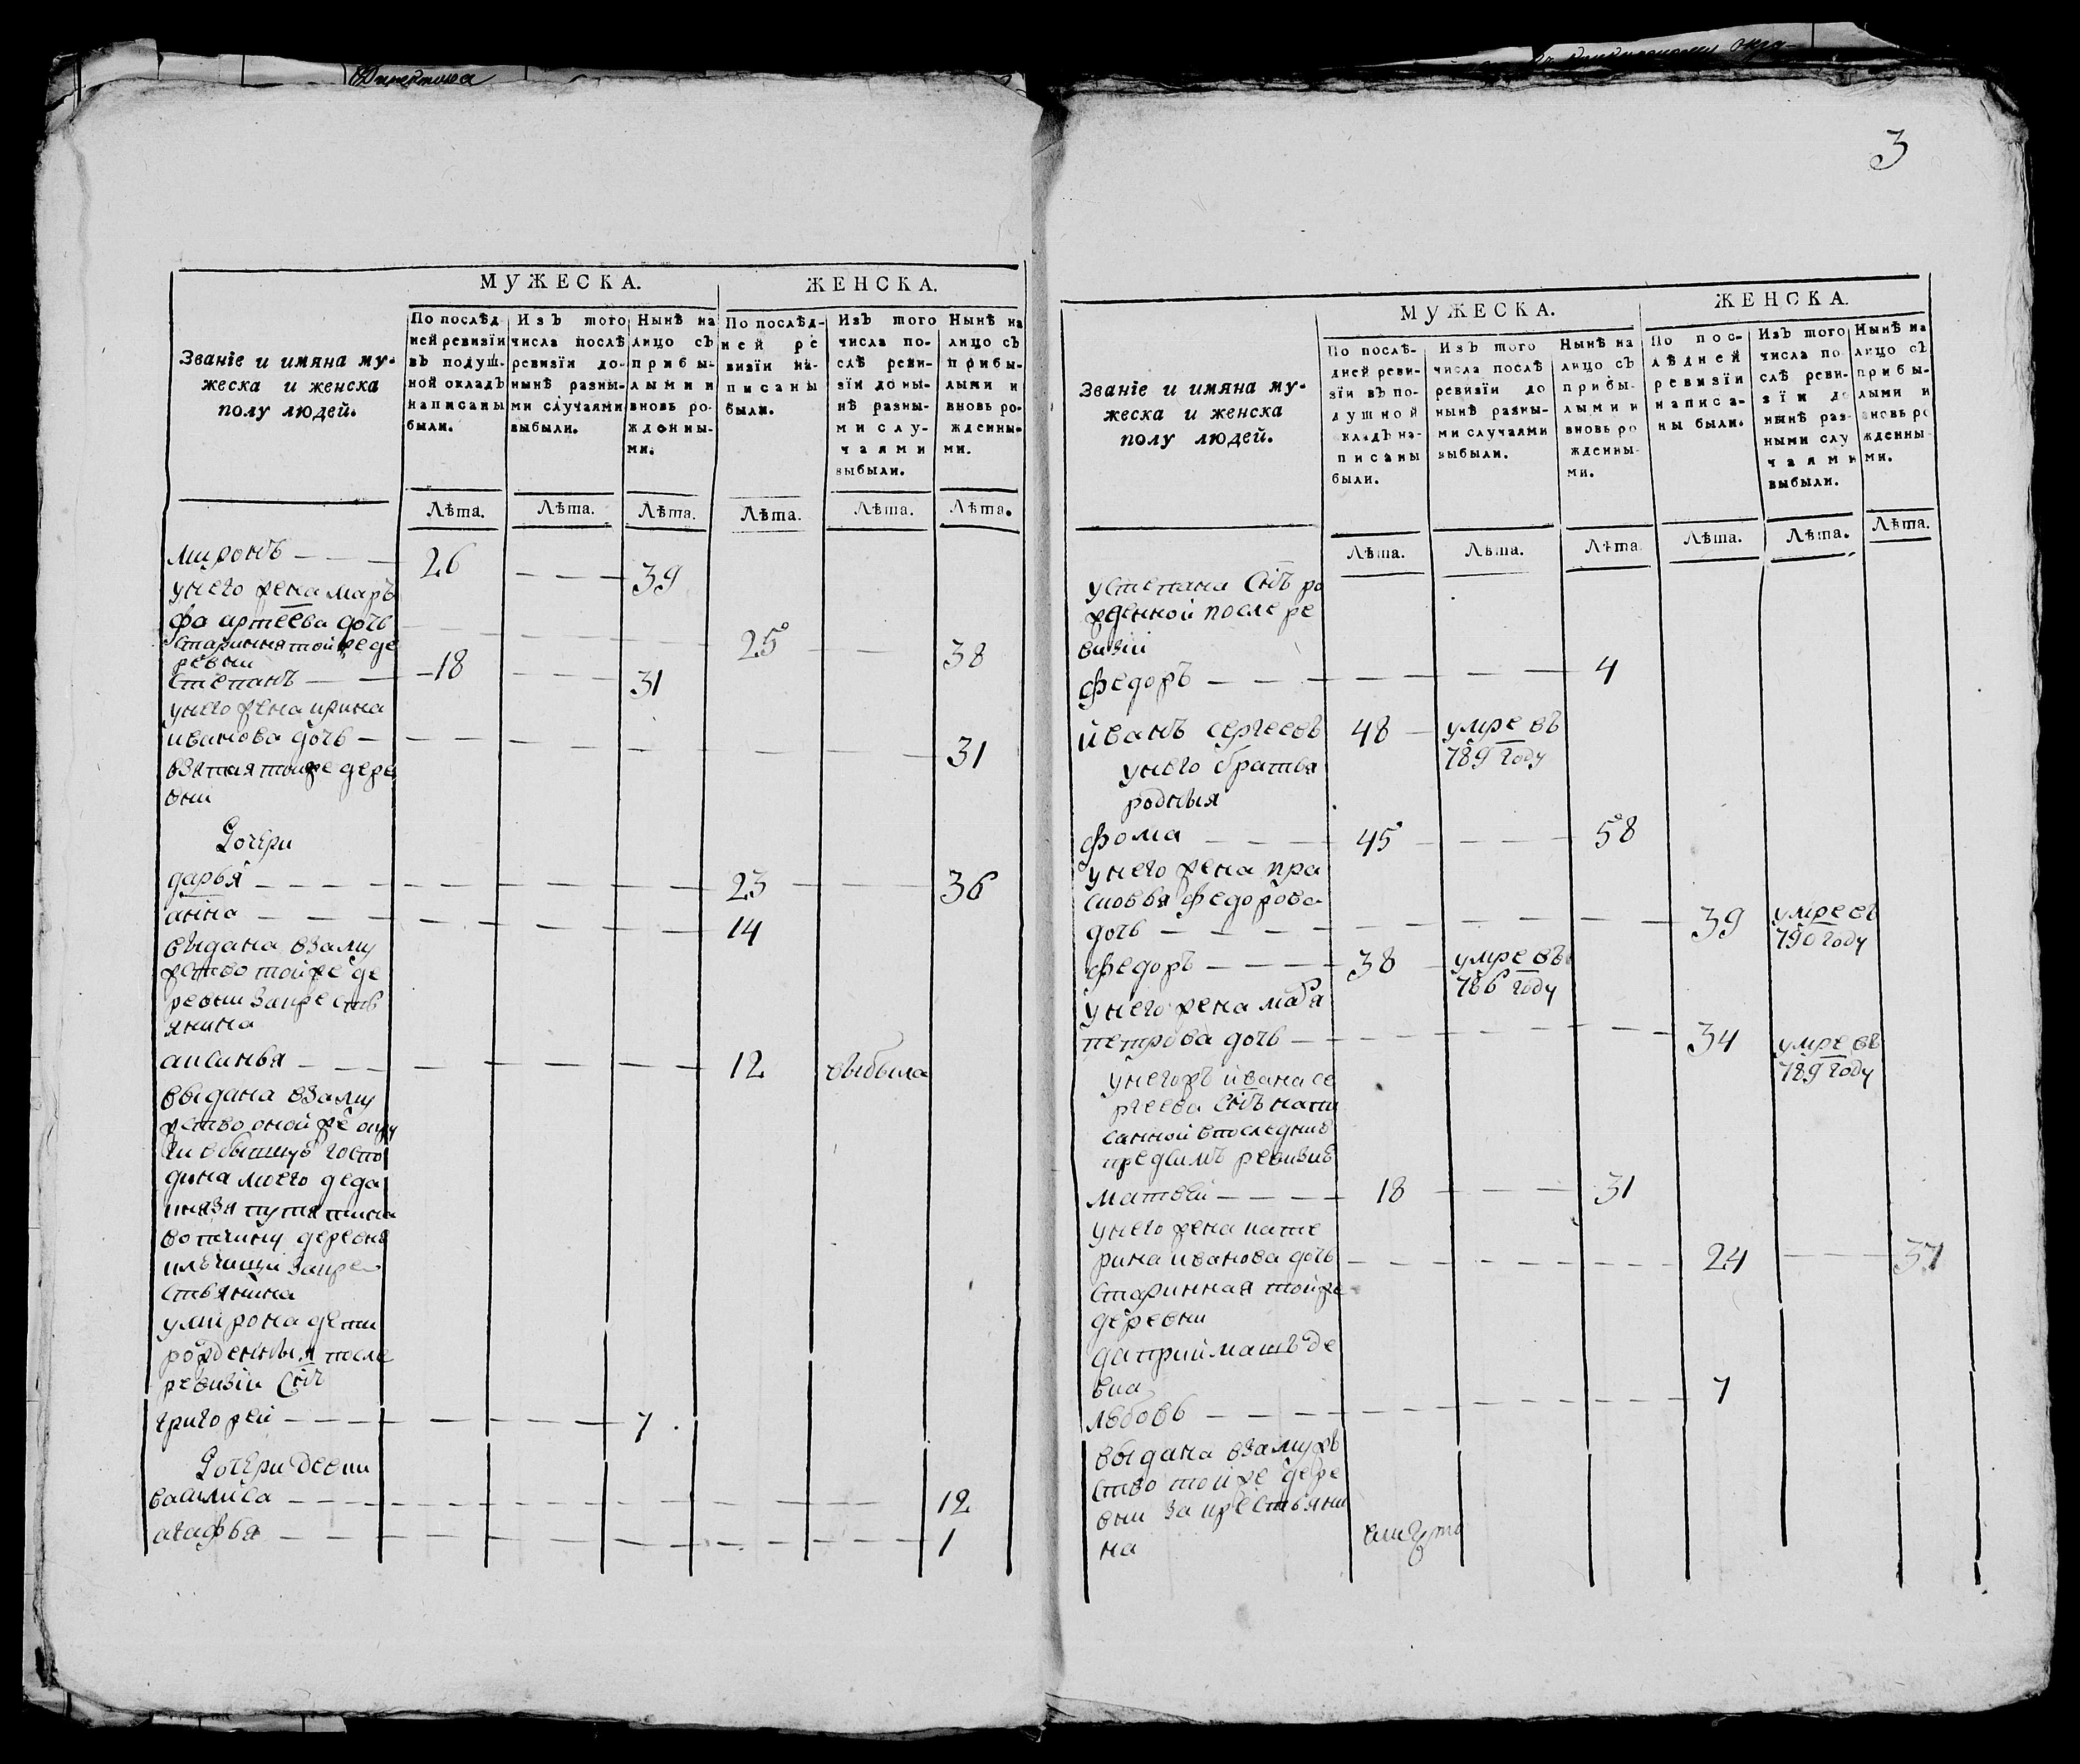 3
МУЖЕСКА.
ЖЕНСКА.
Званіе и имяна му-
жеска и женска
полу людей.
По послѣд
ней ревизїи
въ подуш-
ной окладъ
написаны
были.
Изъ того
числа послѣ
ревизїи до-
нынѣ разны-
ми случаями
выбыли.
Нынѣ на
лицо съ
прибы-
лыми и
вновь ро-
жденны-
ми.
По послѣд-
ней ре
визїи на-
писаны
были.
Изъ того
числа по-
слѣ реви-
зїи до ны-
нѣ разны-
ми слу-
чаями
выбыли.
Нынѣ на
лицо съ
прибы-
лыми и
вновь ро-
жденны-
ми.
Лѣта. Лѣта. Лѣта. Лѣта. Лѣта. Лѣта.
миронъ — — — 26 — — — 39
унего жена марѳ
фа артеева дочь — — — 25 — — 38
старинная тойже де
ревни
степанъ — — — 18 — — — 31
унего жена ирина
иванова дочь — — — 31
взятая тойже дере
вни
Дочери
дарья — — — 23 — — 36
анна — — — 14
выдана взаму
жство тойже де
ревни закресть
янина
аксинья — — — 12 выбыла
выдана взаму
жство оной же
дина моего деда
князя путятина
вотчину деревню
закре
стьянина
умирона дети
рожденныя после
ревизіиСнъ
григорей — — — 7
Дочери девки
василиса — — — 12
агафья — — — 1
МУЖЕСКА.
ЖЕНСКА.
Званіе и имяна му-
жеска и женска
полу людей.
По послѣ-
дней реви-
зїи въ по-
душной
окладъ на-
писаны
были.
Изъ того
числа послѣ
ревизїи до
нынѣ разны-
ми случаями
выбыли.
Нынѣ на
лицо съ
прибы-
лыми и
вновь ро
жденны-
ми.
По пос-
лѣдней
ревизїи
написа-
ны были.
Изъ того
числа по
слѣ реви-
зїи до
нынѣ раз-
ными слу
чаями
выбыли.
Нынѣ на
лицо съ
прибы-
лыми и
вновь ро
жденны
ми.
Лѣта. Лѣта. Лѣта. Лѣта. Лѣта. Лѣта.
устепана Снъ ро
жденной после ре
визіи
федоръ — — — 4
иванъ сергеевъ 48 — умре въ
789 году
унего братья
родныя
фома — — — 45 — — — 58
унего жена пра
сковья федорова
дочь — — — 39 умре въ
790 году
федоръ — — — 38 умре въ
786 году
унего жена марья
петрова дочь — — — 34 умре въ
789 году
унегожъ ивана се
ргеева Снъ напи
санной впоследнюю
предсимъ ревизию
матвей — — — 18 — — — 31
унего жена кате
рина иванова дочь — — — 24 — — 37
старинная тойже
деревни
да приймашъ де
вка
любовь — — — 7
выдана взамуж
ство тойже дере
вни за крестьяни
на